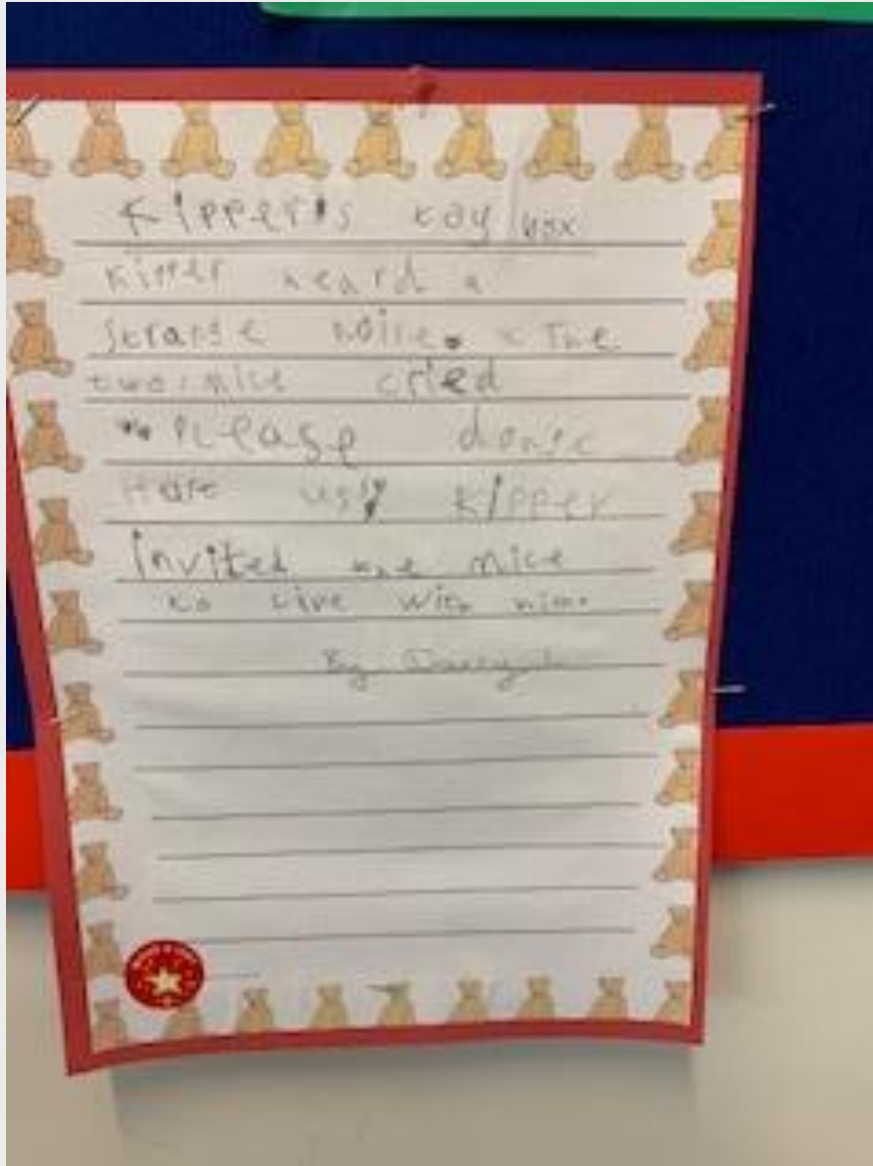 Kipper's toy box
Kipper heard a
strange noise. The
two mice cried
"Please don't
Hurt us" Kipper
invited the mice
to live with him.
By